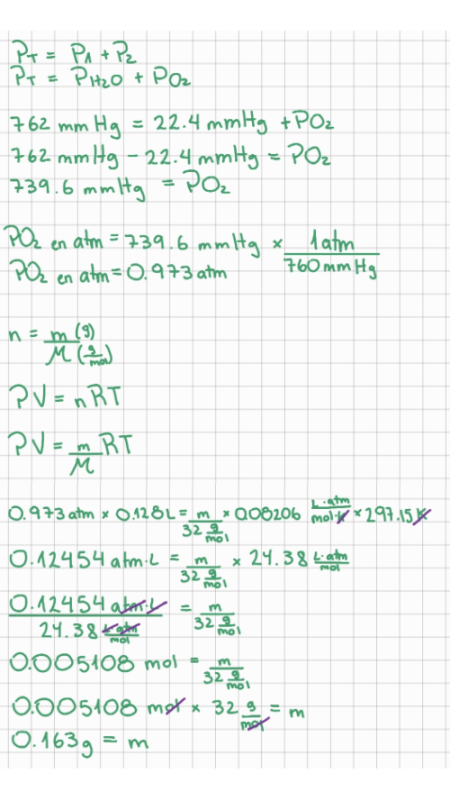 P_T = P_1 + P_2
P_T = P_H₂O + PO₂
762 mm Hg = 22.4 mmHg + PO₂
762 mmHg − 22.4 mmHg = PO₂
739.6 mmHg = PO₂
PO₂ en atm = 739.6 mmHg × 1atm / 760 mmHg
PO₂ en atm = 0.973 atm
n = m (g) / M (g/mol)
PV = nRT
PV = m/M RT
0.973 atm × 0.128 L = m / 32 g/mol × 0.08206 L·atm / mol·K × 297.15 K
0.12454 atm·L = m / 32 g/mol × 24.38 L·atm/mol
0.12454 atm·L / 24.38 L·atm/mol = m / 32 g/mol
0.005108 mol = m / 32 g/mol
0.005108 mol × 32 g/mol = m
0.163g = m